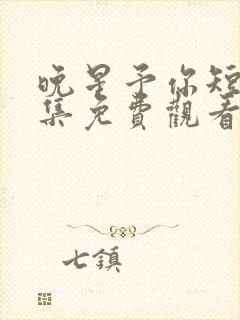 晚星予你短
集免費觀看
七鎮